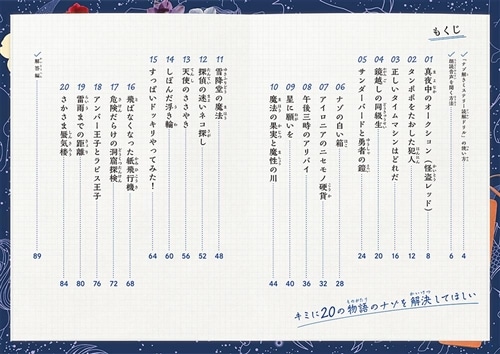 もくじ
「ナゾ解きミステリー読解ドリル」の使い方 4
朗読音声を聞く方法 6
01 真夜中のオークション（怪盗レッド） 8
02 タンポポをたおした犯人 12
03 正しいタイムマシンはどれだ 16
04 鏡越しの同級生 20
05 サンダーバードと勇者の鎧 24
06 ナゾの白い箱 28
07 アイロニアのニセモノ硬貨 32
08 午後三時のアリバイ 36
09 星に願いを 38
10 魔法の果実と魔性の川 44
11 雪降堂の魔法 48
12 探偵の迷いネコ探し 52
13 天使のささやき 56
14 しぼんだ浮き輪 60
15 すっぱいドッキリやってみた！ 64
16 飛ばなくなった紙飛行機 68
17 危険だらけの洞窟探検 72
18 アンバー王子とラピス王子 76
19 雷雨までの距離 80
20 さかさま蜃気楼 84
解答編 89
キミに20の物語のナゾを解決してほしい